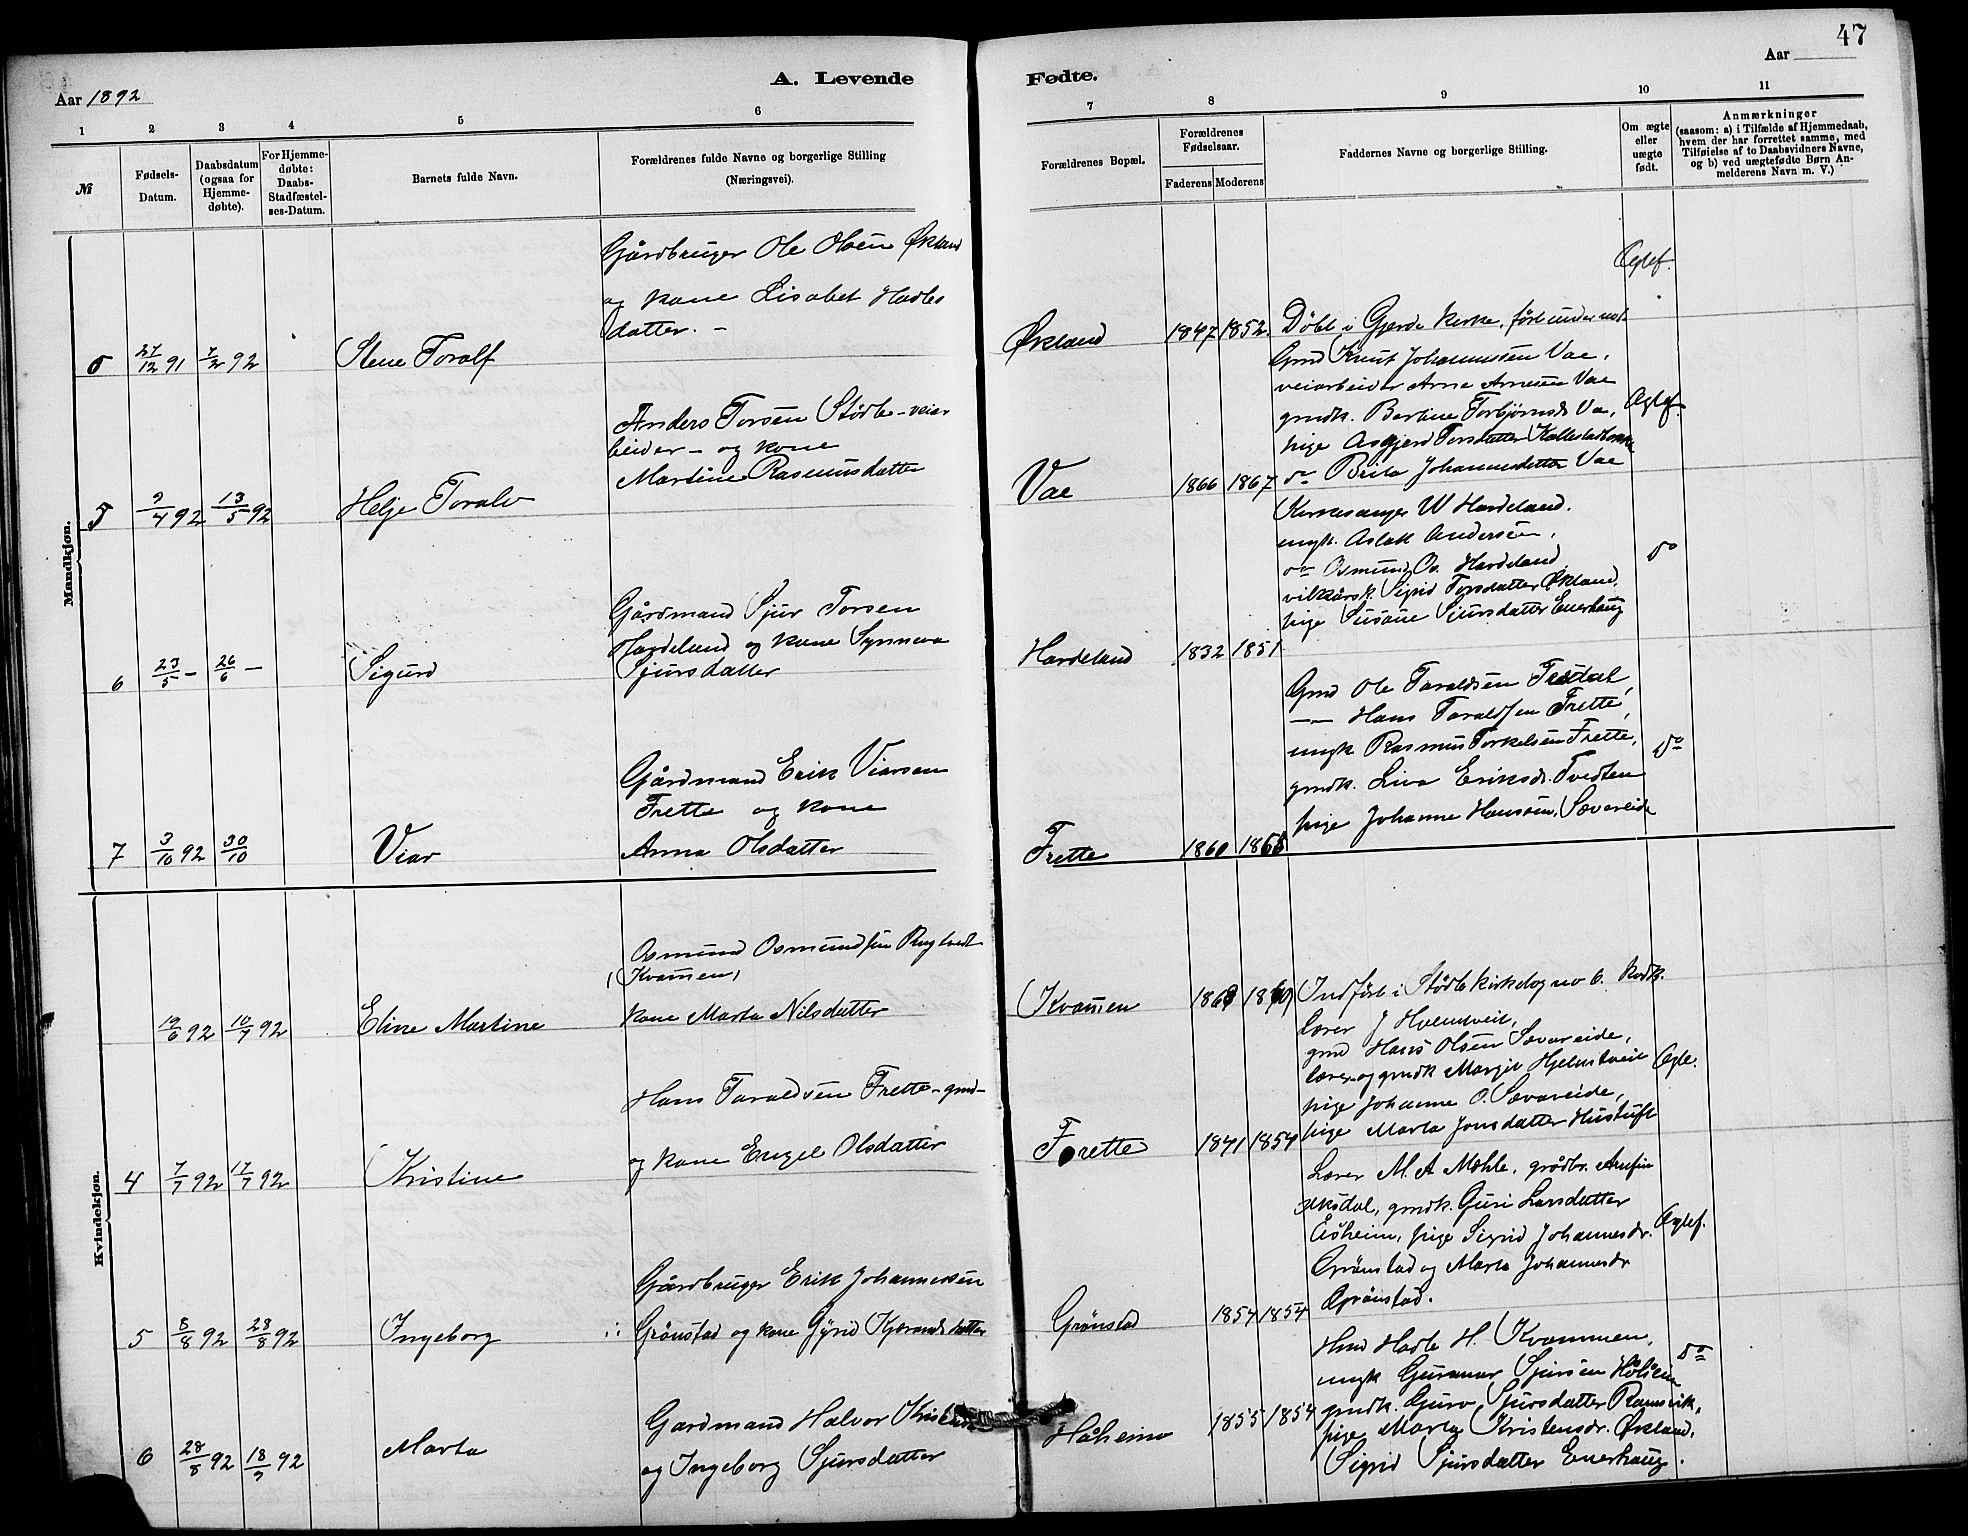 47
A. Levende Fødte.
Aar 1892
Aar
1 2 3 4 5 6 7 8 9 10 11
№
Fødsels-
Datum.
Daabsdatum
(ogsaa for
Hjemme-
døbte).
For Hjemme-
døbte:
Daabs-
Stadfæstel-
ses-Datum.
Barnets fulde Navn.
Forældrenes fulde Navne og borgerlige Stilling
(Næringsvei).
Forældrenes Bopæl.
Forældrenes
Fødselsaar.
Faderens Moderens
Faddernes Navne og borgerlige Stilling.
Om ægte
eller
uægte
født.
Anmærkninger
(saasom: a) i Tilfælde af Hjemmedaab,
hvem der har forrettet samme, med
Tilføielse af to Daabsvidners Navne,
og b) ved uægtefødte Børn An-
melderens Navn m. V.)
Mandkjøn.
27/12 91 7/2 92
Stene Toralf
Gårdbruger Ole Olsen Økland
og kone Lisabet Hadles
datter. –
Økland
1847 1852
Døbt i Gjerde kirke, ført under
Ægtef.
5 9/4 92 13/5 92
Helje Toralv
Anders Torsen Stødle-veiar
beider – og kone
Martine Rasmusdatter
Vae
1866 1867
Gmd Knut Johannessen Vae,
veiarbeider Arne Arnesen Vae
gmdk. Bertine Torbjørnsd. Vae,
pige Asgjerd Torsdatter
do Brita Johannesdatter Vae
Ægtef.
6 23/5 – 26/6 –
Sigurd
Gårdmand Sjur Torsen
Hardeland og kone Synneva
Sjursdatter
Hardeland
1832 1851
Kirkesanger W Hardeland.
ungk. Aslak Andersen,
do Osmund Os. Hardeland
vilkårsk. Sigrid Torsdatter Økland,
pige Susane Sjursdatter Enerhaug
do
7 3/10 92 30/10
Viar
Gårdmand Erik Viarsen
Frette og kone
Anna Olsdatter
Frette
1860
Gmd Ole Taraldsen
—— Hans Taraldsen Frette,
ungk Rasmus Torkelsen Frette,
gmdk. Liva Eriksdr. Tvedten
pige Johanne Hanssen, Sævareide
do
Kvindekjøn.
19/6 92 10/7 92
Eline Martine
Osmund Osmundsen
(Kvamen)
kone Marta Nilsdatter
Kvamen
Indført i Stødle kirkebog no 6.
4 7/7 92 17/7 92
Kristine
Hans Taraldsen Frette – gmd –
og kone Engel Olsdatter
Frette
1841 1854
Lærer J Hjelmtveit,
gmd Hans Olsen Sævareide,
lærer og gmdk Margit Hjelmtveit
pige Johanne O. Sævareide,
pige Marta Jonsdatter Hustuft
Ægte.
5 8/8 92 28/8 92
Ingeborg
Gårdbruger Erik Johannessen
Grønstad og kone Gyrid Kjærandsdatter
Grønstad
1854 1854
Lærer M. A Mæhle, grdbr. Arnfin
Æksdal, gmdk. Guri Larsdatter
Åsheim, pige Sigrid Johannesdr.
Grønstad og Marta Johannesdr
Grønstad.
Ægtef.
6 28/8 92 18/9 92
Marta
Gardmand Halvor
og Ingeborg Sjursdatter
Håheim
1855 1854
Hmd Hadle H. Kvammen,
ungk Gunnar Sjursen Håheim
gmdk. Guro Sjursdatter Ramsvik,
pige Marta Kristensdr. Økland,
Sigrid Sjursdatter Enerhaug.
do